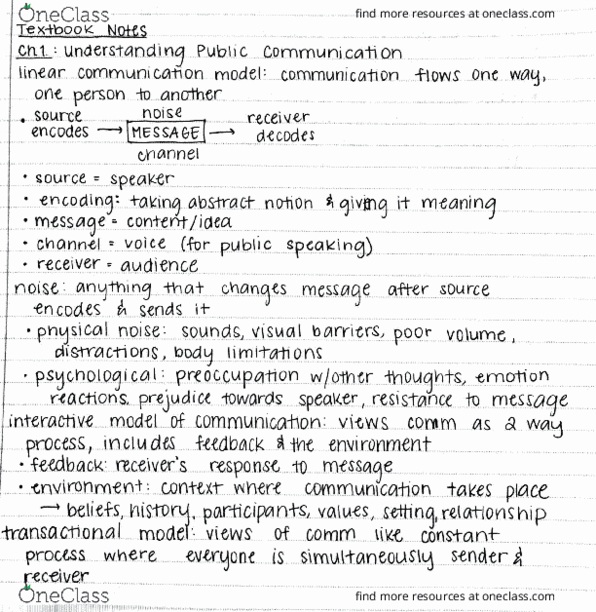 OneClass find more resources at oneclass.com
Textbook Notes
Ch1: Understanding Public Communication
linear communication model: communication flows one way,
one person to another
• source noise receiver
encodes → MESSAGE → decodes
channel
• source = speaker
• encoding: taking abstract notion & giving it meaning
• message = content/idea
• channel = voice (for public speaking)
• receiver = audience
noise: anything that changes message after source
encodes & sends it
• physical noise: sounds, visual barriers, poor volume,
distractions, body limitations
• psychological: preoccupation w/other thoughts, emotion
reactions, prejudice towards speaker, resistance to message
interactive model of communication: views comm as a 2 way
process, includes feedback & the environment
• feedback: receiver's response to message
• environment: context where communication takes place
→ beliefs, history, participants, values, setting, relationship
transactional model: views of comm like constant
process where everyone is simultaneously sender &
receiver
OneClass find more resources at oneclass.com